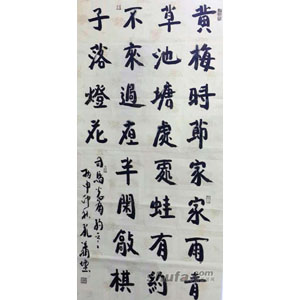 黄梅時節家家雨青
草池塘處處蛙有約
不來過夜半閑敲棋
子落燈花